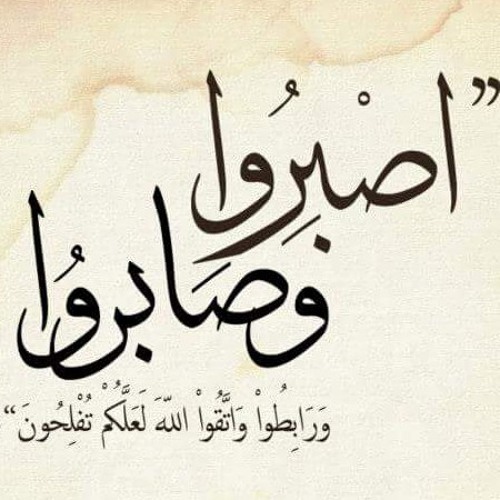 ”اصْبِرُوا
وَصَابرُوا
وَرَابِطُواْ وَاتَّقُواْ اللّهَ لَعَلَّكُمْ تُفْلِحُونَ“